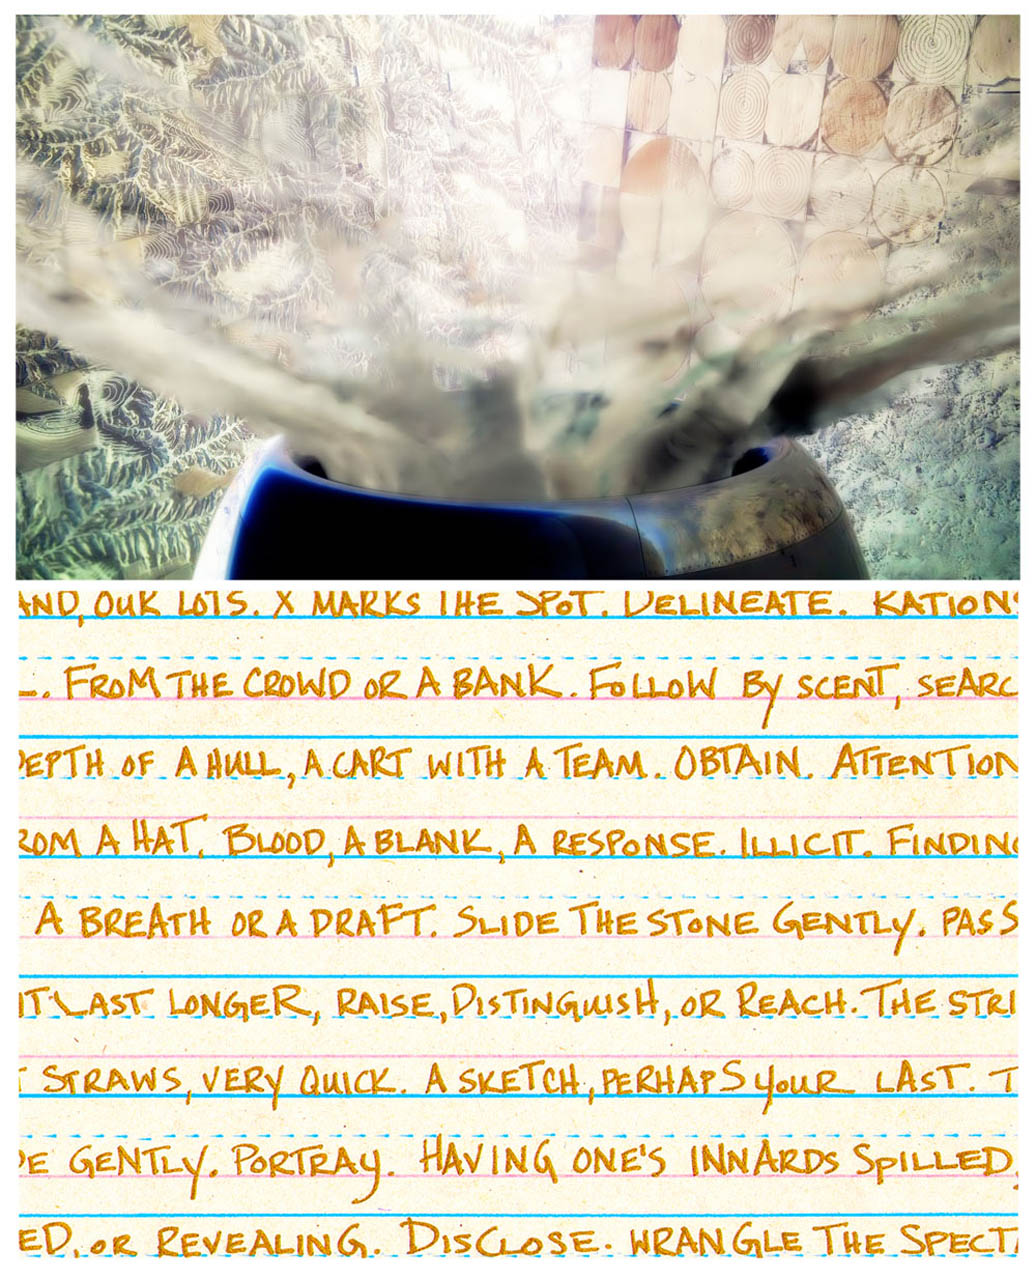 AND, OUR LOTS. X MARKS THE SPOT. DELINEATE. RATIONS
FROM THE CROWD OR A BANK. FOLLOW BY SCENT, SEARC
DEPTH OF A HULL, A CART WITH A TEAM. OBTAIN. ATTENTION
ROM A HAT. BLOOD, A BLANK, A RESPONSE. ILLICIT. FINDING
A BREATH OR A DRAFT. SLIDE THE STONE GENTLY. PASS
IT LAST LONGER, RAISE, DISTINGUISH, OR REACH. THE STRI
T STRAWS, VERY QUICK. A SKETCH, PERHAPS YOUR LAST. T
DE GENTLY. PORTRAY. HAVING ONE'S INNARDS SPILLED,
ED, OR REVEALING. DISCLOSE. WRANGLE THE SPECT